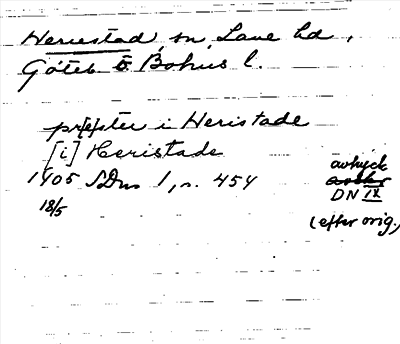 Herrestad, sn, Lane hd,
Göteb o. Bohus l.
pr[e]ster i Heristade
[i] Heristade
1405 SDns 1, n. 454
18/5
avtryck
DN IX
(efter orig.)